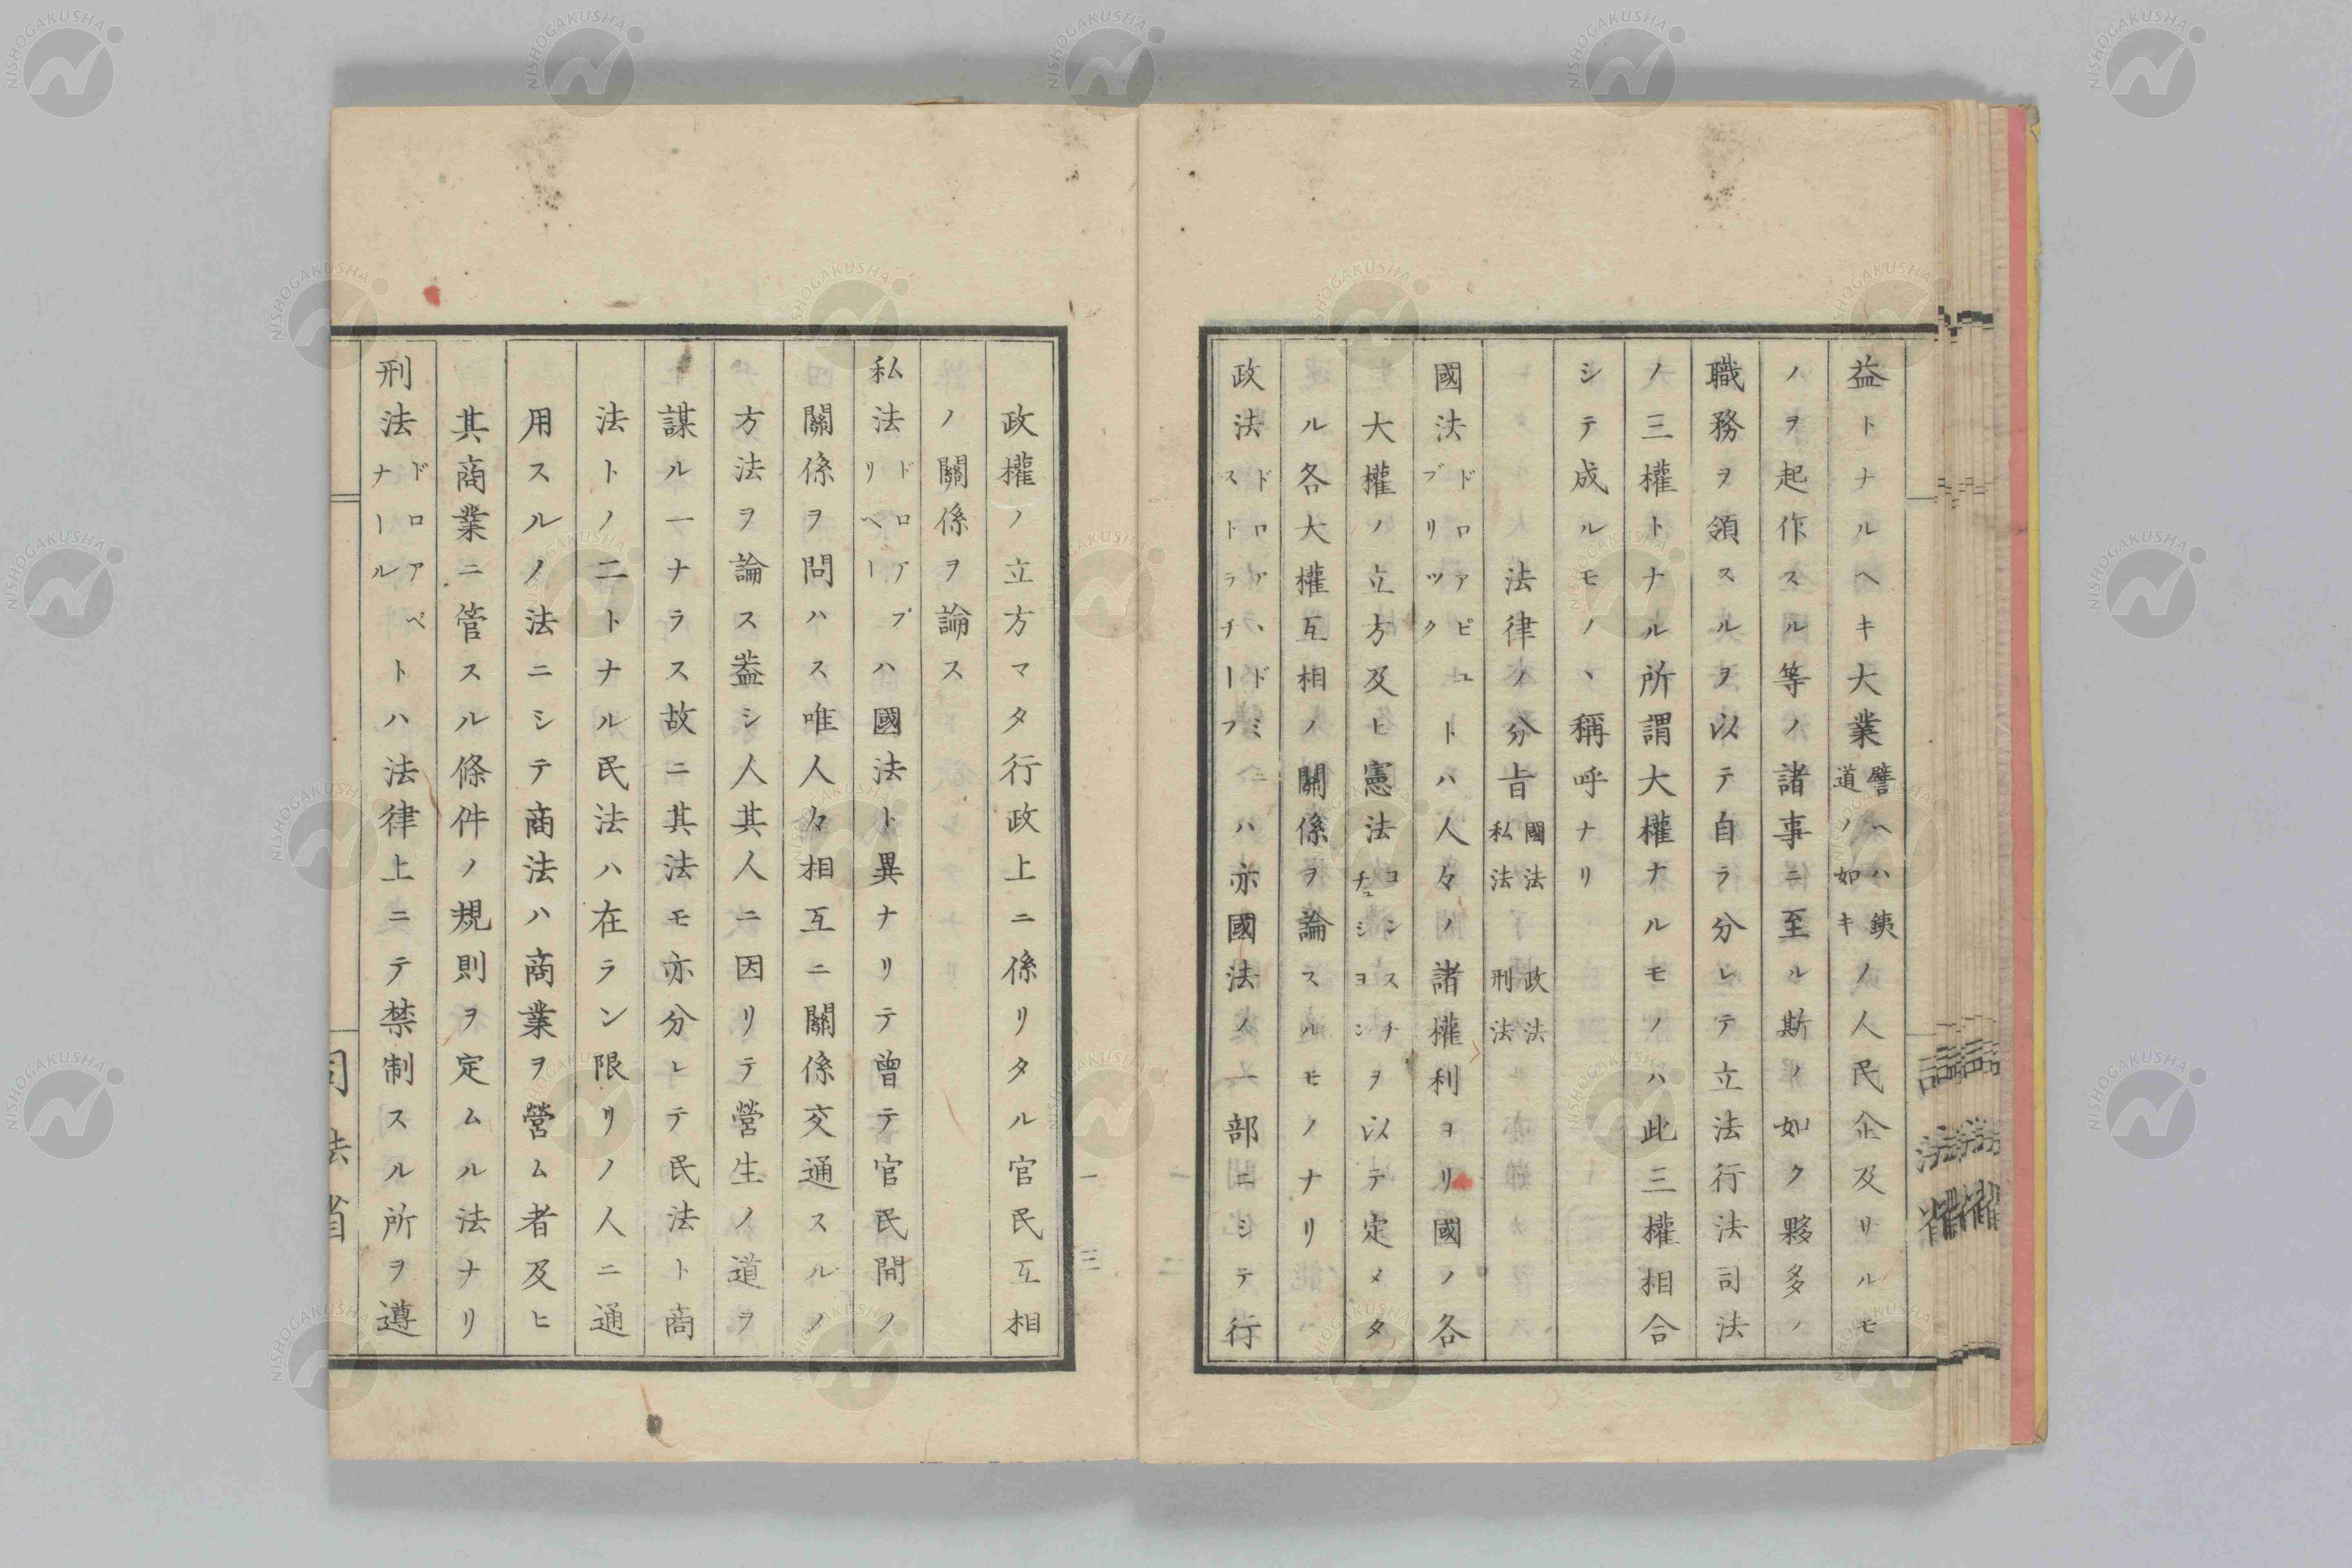 益トナルヘキ大業譬ヘハ銕道ノ如キノ人民企及サルモ
ノヲ起作スル等ノ諸事ニ至ル斯ノ如ク夥多ノ
職務ヲ領スルヲ以テ自ラ分レテ立法行法司法
ノ三權トナル所謂大權ナルモノハ此三權相合
シテ成ルモノヽ稱呼ナリ
法律ノ分㫖國法私法政法刑法
國法ドロアピュブリツクトハ人々ノ諸權利ヨリ國ノ各
大權ノ立方及ヒ憲法コンスチチュシヨンヲ以テ定メタ
ル各大權互相ノ關係ヲ論スルモノナリ
政法ドロアヽドミニストラチーフハ亦國法ノ一部ニシテ行
政權ノ立方マタ行政上ニ係リタル官民互相
ノ關係ヲ論ス
私法ドロアプリベーハ國法ト異ナリテ曽テ官民間ノ
關係ヲ問ハス唯人々相互ニ關係交通スルノ
方法ヲ論ス葢シ人其人ニ因リテ營生ノ道ヲ
謀ル一ナラス故ニ其法モ亦分レテ民法ト商
法トノ二トナル民法ハ在ラン限リノ人ニ通
用スルノ法ニシテ商法ハ商業ヲ營ム者及ヒ
其商業ニ管スル條件ノ規則ヲ定ムル法ナリ
刑法ドロアペナールトハ法律上ニテ禁制スル所ヲ遵
司法省
一
二
一
三
NISHOGAKUSHA